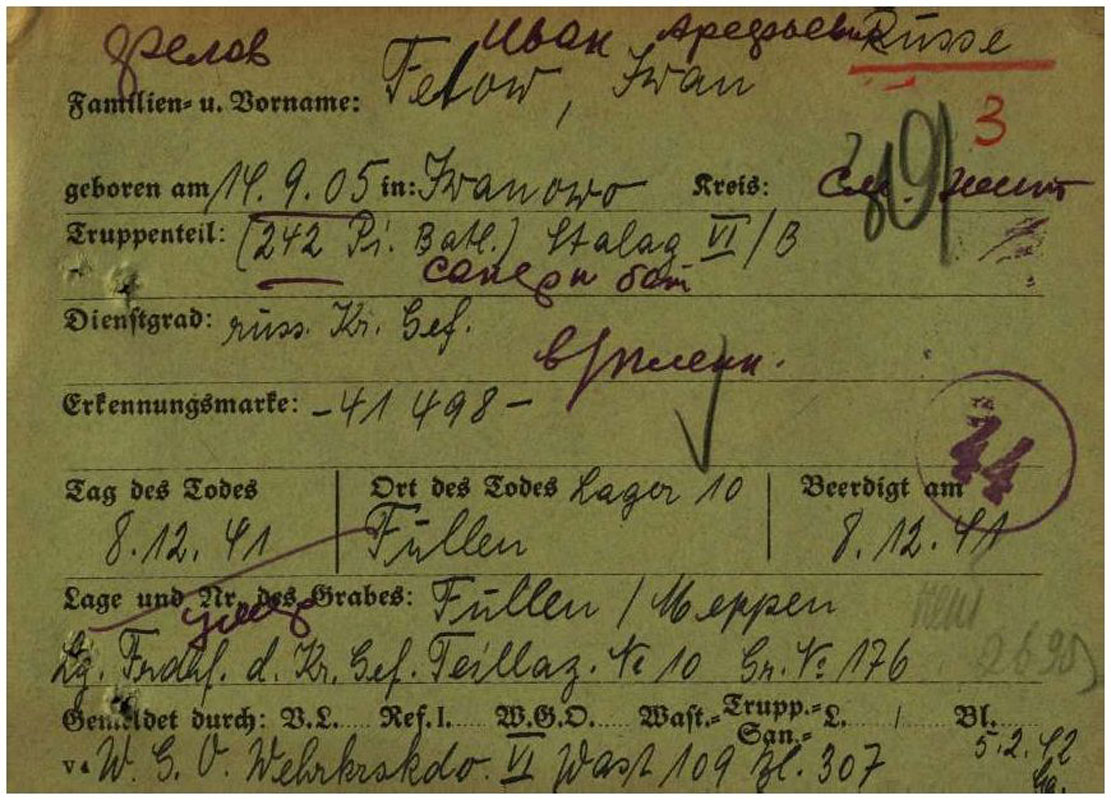 Фелов Иван Арефьевич Russe
Familien- u. Vorname: Felow, Iwan
3
geboren am 14. 9. 05 in: Iwanowo Kreis:
Truppenteil: (242 Pi. Batl.) Stalag VI/B
саперн бат
Dienstgrad: russ. Kr. Gef.
в/пленн.
Erkennungsmarke: -41 498-
44
Tag des Todes Ort des Todes Lager 10 Beerdigt am
8.12.41 Füllen 8.12.41
Lage und Nr. des Grabes: Füllen / Meppen
умер
Lg. Frdhf. d. Kr. Gef. Teillaz. № 10 Gr. № 176
Gemeldet durch: V.L. Ref. I. W.G.O. Wast.= Trupp.= San.= L. / Bl.
5.2.42
v. W. G. O. Wehrkrskdo. VI Wast 109 Bl. 307